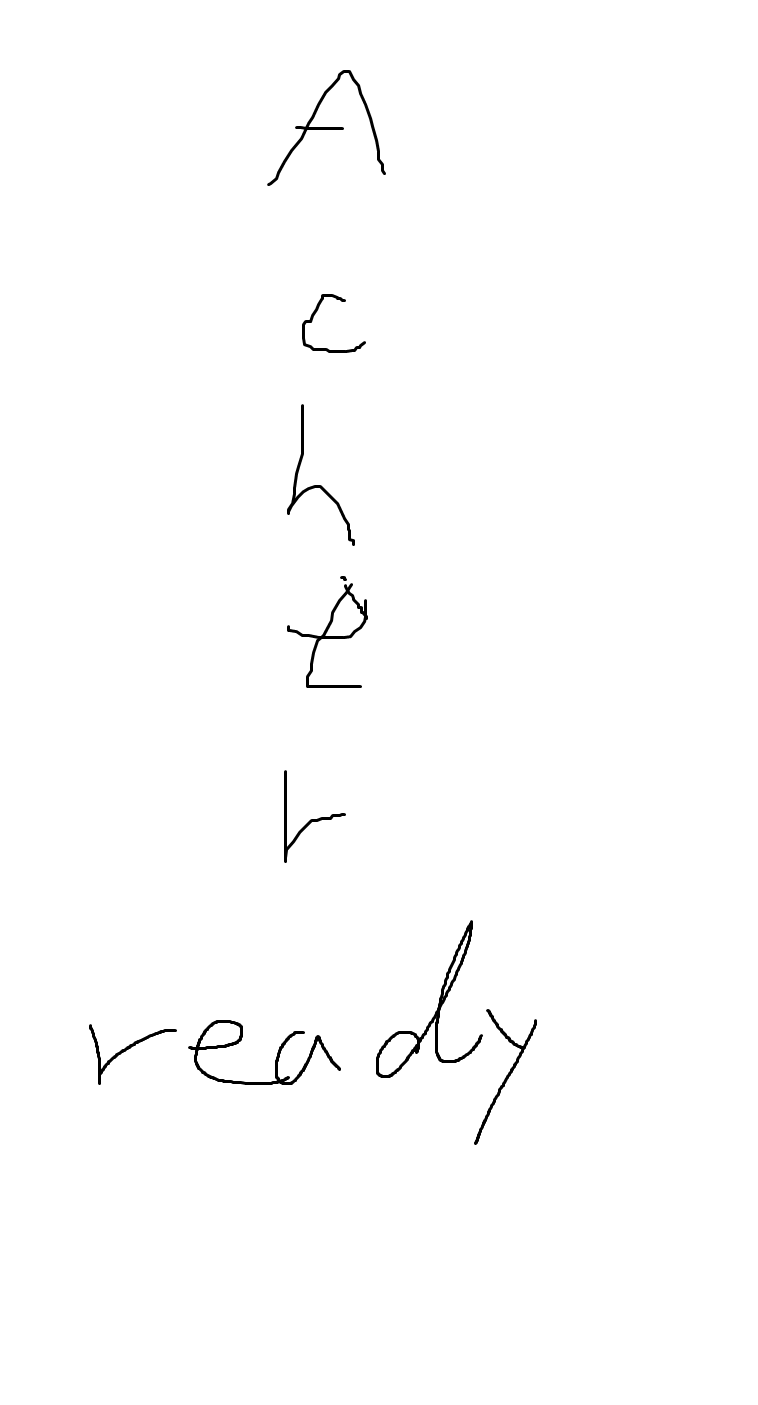 A
c
h
e
r
ready